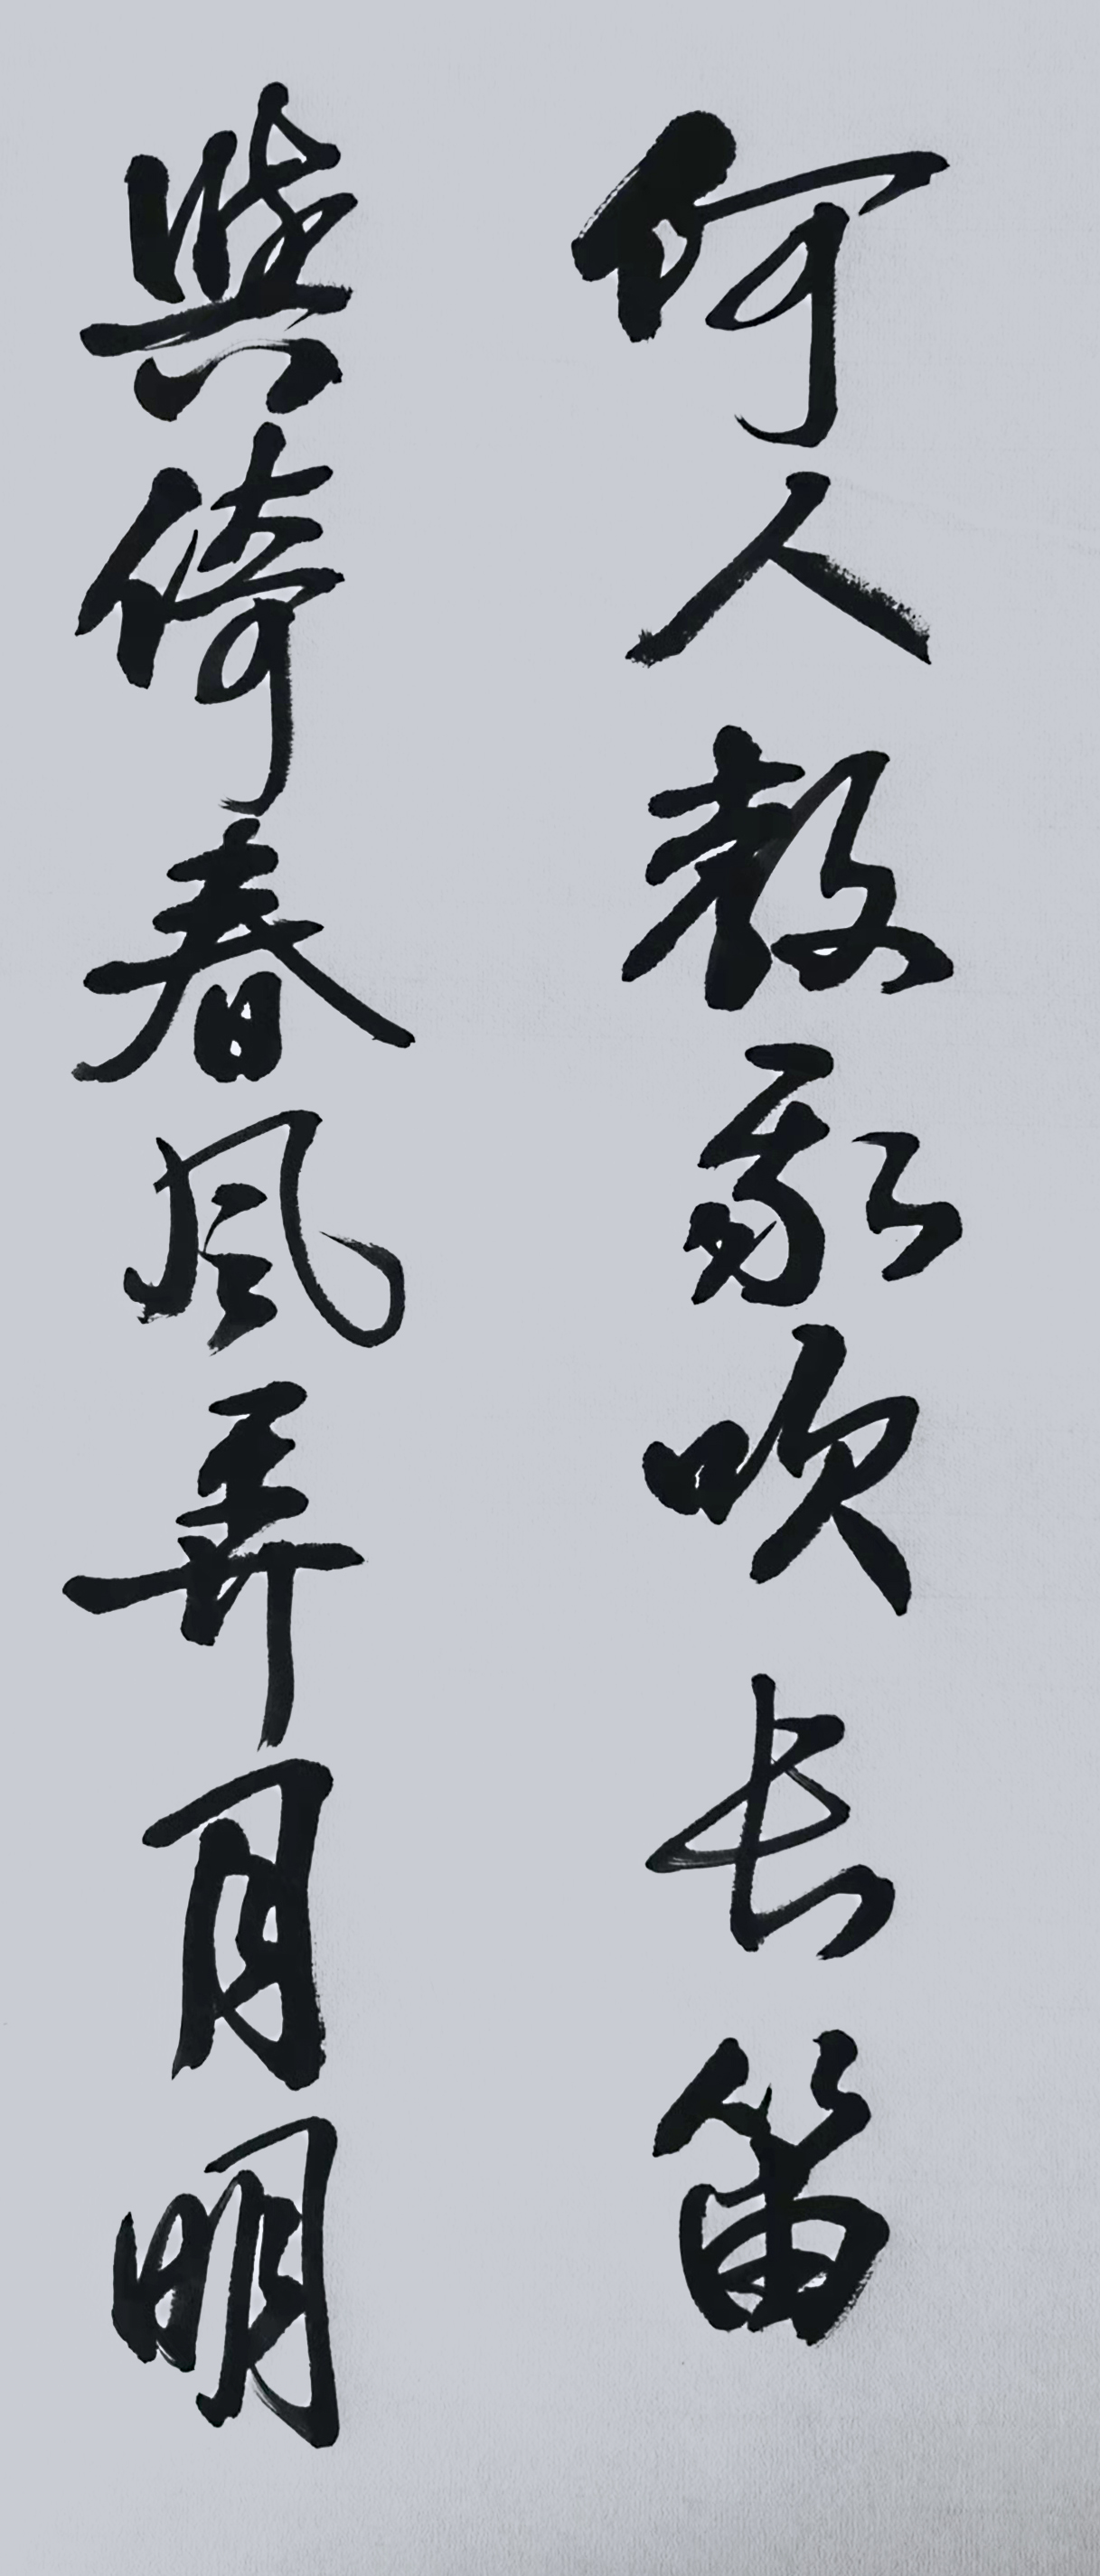 何人教我吹长笛
與倚春风弄月明